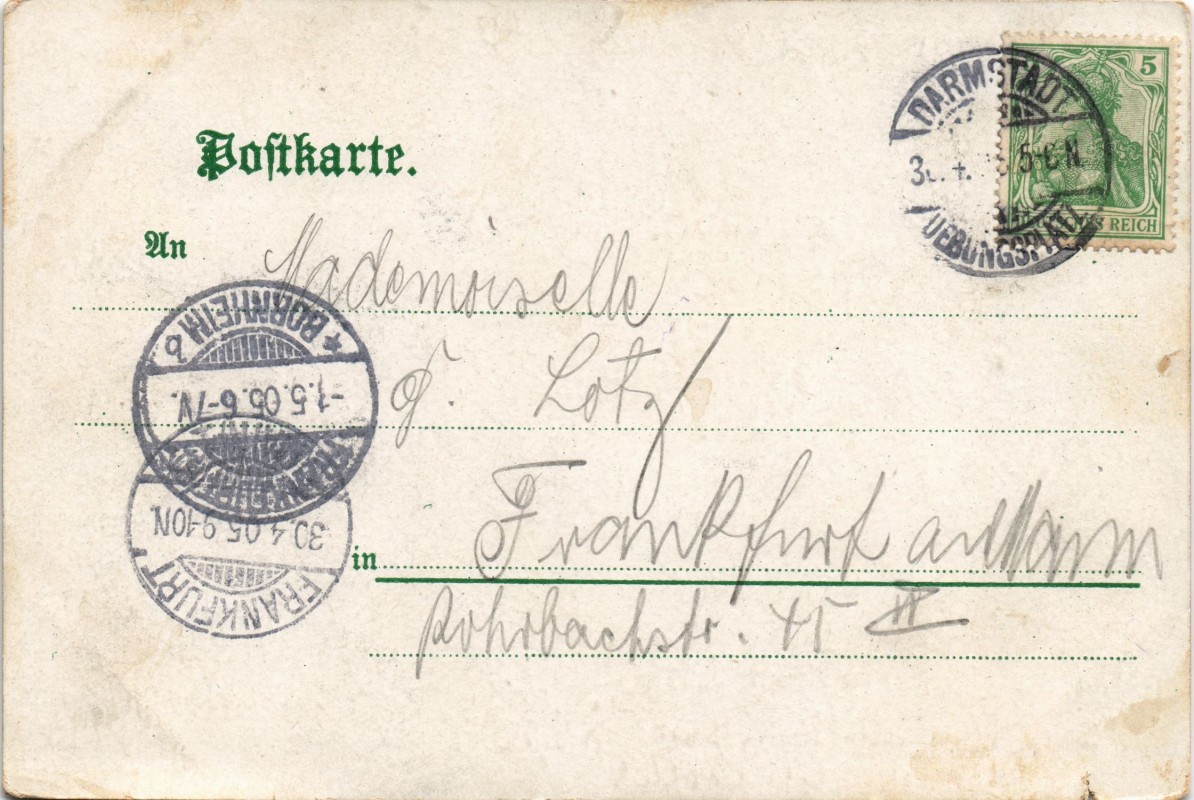 Postkarte.
An
Mademoiselle
G. Lotz
in Frankfurt a Main
Rohrbachstr. 45 II
DARMSTADT
5-6 N.
UEBUNGSPLATZ
5
REICH
* BORNHEIM b
-1.5.05.6-7V.
FRANKFURT
30.4.05.9-10N.
FRANKFURT